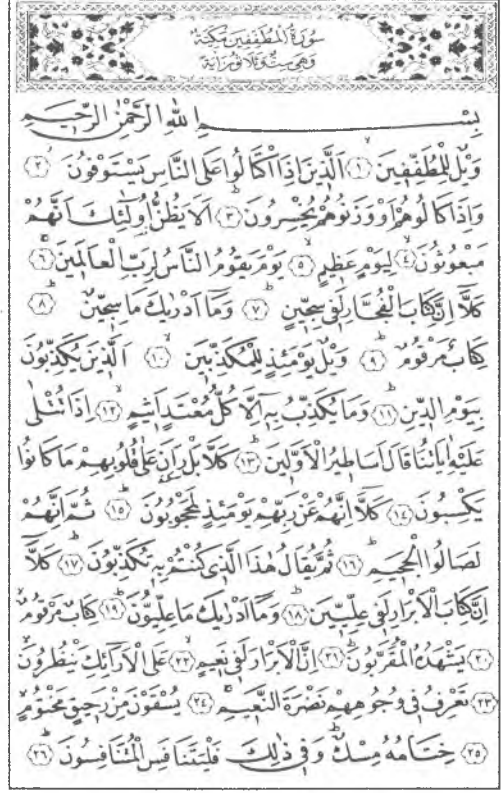 سُورَةُ الْمُطَفِّفِينَ مَكِّيَّةٌ
وَهِيَ سِتٌّ وَثَلَاثُونَ اٰيَةً
بِسْمِ اللّٰهِ الرَّحْمٰنِ الرَّحِيمِ
وَيْلٌ لِلْمُطَفِّفِينَۙ ﴿١﴾ اَلَّذِينَ اِذَا اكْتَالُوا عَلَى النَّاسِ يَسْتَوْفُونَۘ ﴿٢﴾
وَاِذَا كَالُوهُمْ اَوْ وَزَنُوهُمْ يُخْسِرُونَۜ ﴿٣﴾ اَلَا يَظُنُّ اُولٰٓئِكَ اَنَّهُمْ
مَبْعُوثُونَۙ ﴿٤﴾ لِيَوْمٍ عَظِيمٍۙ ﴿٥﴾ يَوْمَ يَقُومُ النَّاسُ لِرَبِّ الْعَالَمِينَۜ ﴿٦﴾
كَلَّٓا اِنَّ كِتَابَ الْفُجَّارِ لَفِي سِجِّينٍۜ ﴿٧﴾ وَمَٓا اَدْرٰيكَ مَا سِجِّينٌۜ ﴿٨﴾
كِتَابٌ مَرْقُومٌۜ ﴿٩﴾ وَيْلٌ يَوْمَئِذٍ لِلْمُكَذِّبِينَۙ ﴿١٠﴾ اَلَّذِينَ يُكَذِّبُونَ
بِيَوْمِ الدِّينِۜ ﴿١١﴾ وَمَا يُكَذِّبُ بِهٖٓ اِلَّا كُلُّ مُعْتَدٍ اَثِيمٍۙ ﴿١٢﴾ اِذَا تُتْلٰى
عَلَيْهِ اٰيَاتُنَا قَالَ اَسَاطِيرُ الْاَوَّلِينَۜ ﴿١٣﴾ كَلَّا بَلْ رَانَ عَلٰى قُلُوبِهِمْ مَا كَانُوا
يَكْسِبُونَ ﴿١٤﴾ كَلَّٓا اِنَّهُمْ عَنْ رَبِّهِمْ يَوْمَئِذٍ لَمَحْجُوبُونَۜ ﴿١٥﴾ ثُمَّ اِنَّهُمْ
لَصَالُوا الْجَحِيمِۜ ﴿١٦﴾ ثُمَّ يُقَالُ هٰذَا الَّذِي كُنْتُمْ بِهٖ تُكَذِّبُونَۜ ﴿١٧﴾ كَلَّٓا
اِنَّ كِتَابَ الْاَبْرَارِ لَفِي عِلِّيِّينَۜ ﴿١٨﴾ وَمَٓا اَدْرٰيكَ مَا عِلِّيُّونَۜ ﴿١٩﴾ كِتَابٌ مَرْقُومٌۙ
﴿٢٠﴾ يَشْهَدُهُ الْمُقَرَّبُونَۜ ﴿٢١﴾ اِنَّ الْاَبْرَارَ لَفِي نَعِيمٍۙ ﴿٢٢﴾ عَلَى الْاَرَٓائِكِ يَنْظُرُونَۙ
﴿٢٣﴾ تَعْرِفُ فِي وُجُوهِهِمْ نَضْرَةَ النَّعِيمِۚ ﴿٢٤﴾ يُسْقَوْنَ مِنْ رَحِيقٍ مَخْتُومٍۙ
﴿٢٥﴾ خِتَامُهُ مِسْكٌۜ وَفِي ذٰلِكَ فَلْيَتَنَافَسِ الْمُتَنَافِسُونَۜ ﴿٢٦﴾